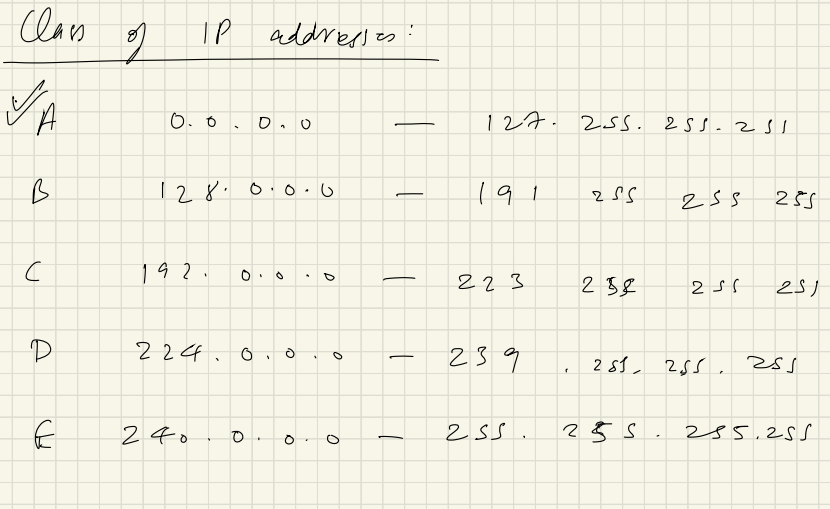 Class of IP addresses:
A 0.0.0.0 — 127.255.255.255
B 128.0.0.0 — 191 255 255 255
C 192.0.0.0 — 223 255 255 255
D 224.0.0.0 — 239.255.255.255
E 240.0.0.0 — 255.255.255.255